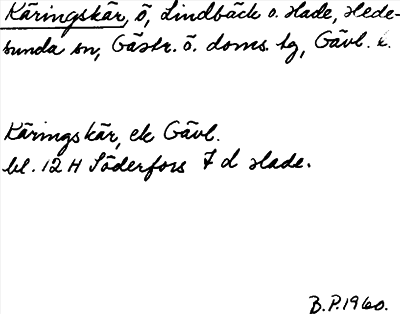 Käringskär, ö, Lindbäck o. Hade, Hede-
sunda sn, Gästr. ö. doms. tg, Gävl. l.
Käringskär, ek Gävl.
bl. 12 H Söderfors 7 d Hade.
B.P. 1960.